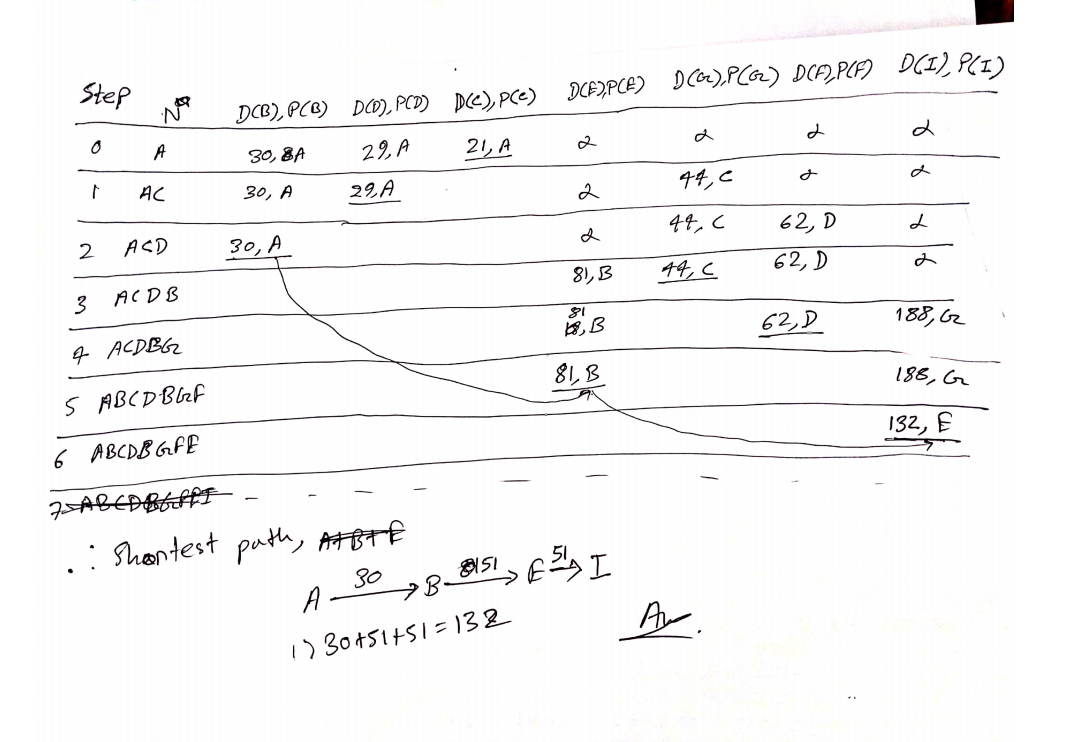 Step N D(B), P(B) D(D), P(D) D(C), P(C) D(E), P(E) D(G), P(G) D(F), P(F) D(I), P(I)
0 A 30, A 29, A 21, A α α α α
1 AC 30, A 29, A α 44, C α α
2 ACD 30, A α 44, C 62, D α
3 ACDB 81, B 44, C 62, D α
4 ACDBG 81, B 62, D 188, G
5 ABCDBGF 81, B 188, G
6 ABCDBGFE 132, E
7 - - - - - - -
∴ Shortest path,
A 30→ B 51→ E 51→ I
1) 30+51+51=132